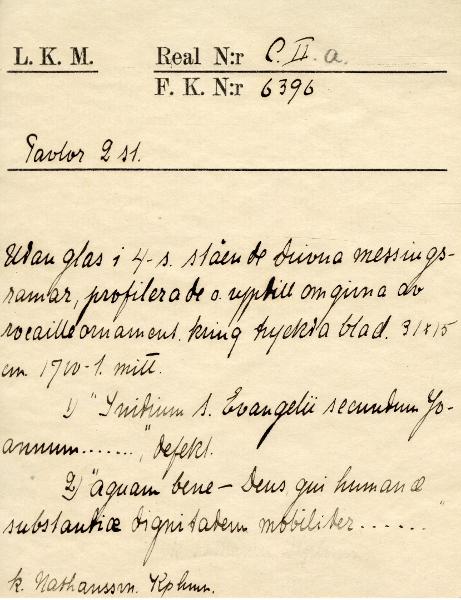 L. K. M. Real N:r C. II. a.
F. K. N:r 6396
Tavlor 2 st.
Utan glas i 4-s. stående drivna messings-
ramar, profilerade o. upptill omgivna av
rocailleornament. kring tryckta blad. 31x15
cm. 1700-t. mitt.
1) "Initium s. Evangelii secundum Jo-
annum.......", defekt.
2) "aquam bene – Deus, qui humanæ
substantiæ dignitatem mobiliter ......"
k. Nathansson. Kphmn.